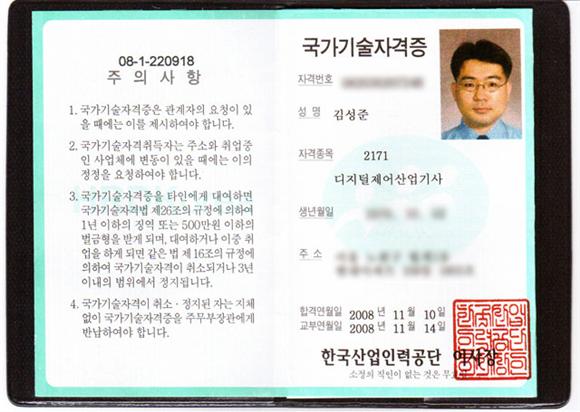 08-1-220918
주 의 사 항
1. 국가기술자격증은 관계자의 요청이 있
을 때에는 이를 제시하여야 합니다.
2. 국가기술자격취득자는 주소와 취업중
인 사업체에 변동이 있을 때에는 이의
정정을 요청하여야 합니다.
3. 국가기술자격증을 타인에게 대여하면
국가기술자격법 제26조의 규정에 의하여
1년 이하의 징역 또는 500만원 이하의
벌금형을 받게 되며, 대여하거나 이중 취
업을 하게 되면 같은 법 제16조의 규정에
의하여 국가기술자격이 취소되거나 3년
이내의 범위에서 정지됩니다.
4. 국가기술자격이 취소·정지된 자는 지체
없이 국가기술자격증을 주무부장관에게
반납하여야 합니다.
국가기술자격증
자격번호
성 명 김성준
자격종목 2171
디지털제어산업기사
생년월일
주 소
합격연월일 2008 년 11 월 10 일
교부연월일 2008 년 11 월 14 일
한국산업인력공단 이사장
소정의 직인이 없는 것은 무효임